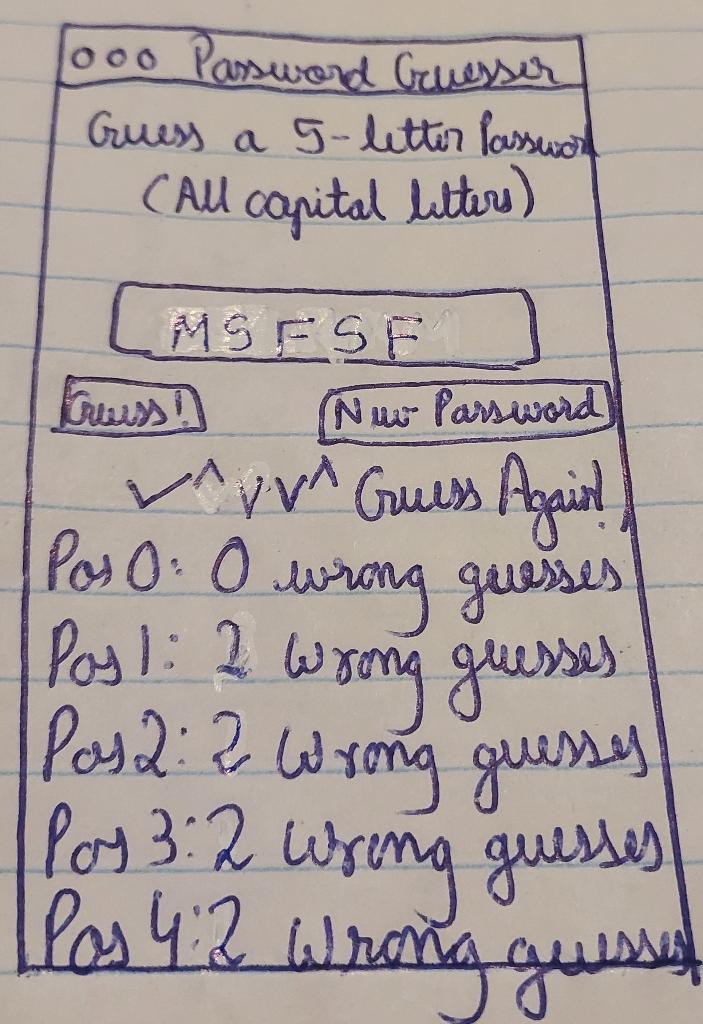 ooo Password Guesser
Guess a 5-letter Passwor
(All capital letters)
MSFSF
Guess! New Password
✓^vv^ Guess Again!
Pos 0: 0 wrong guesses
Pos 1: 2 wrong guesses
Pos 2: 2 wrong guesses
Pos 3: 2 wrong guesses
Pos 4: 2 wrong guesses